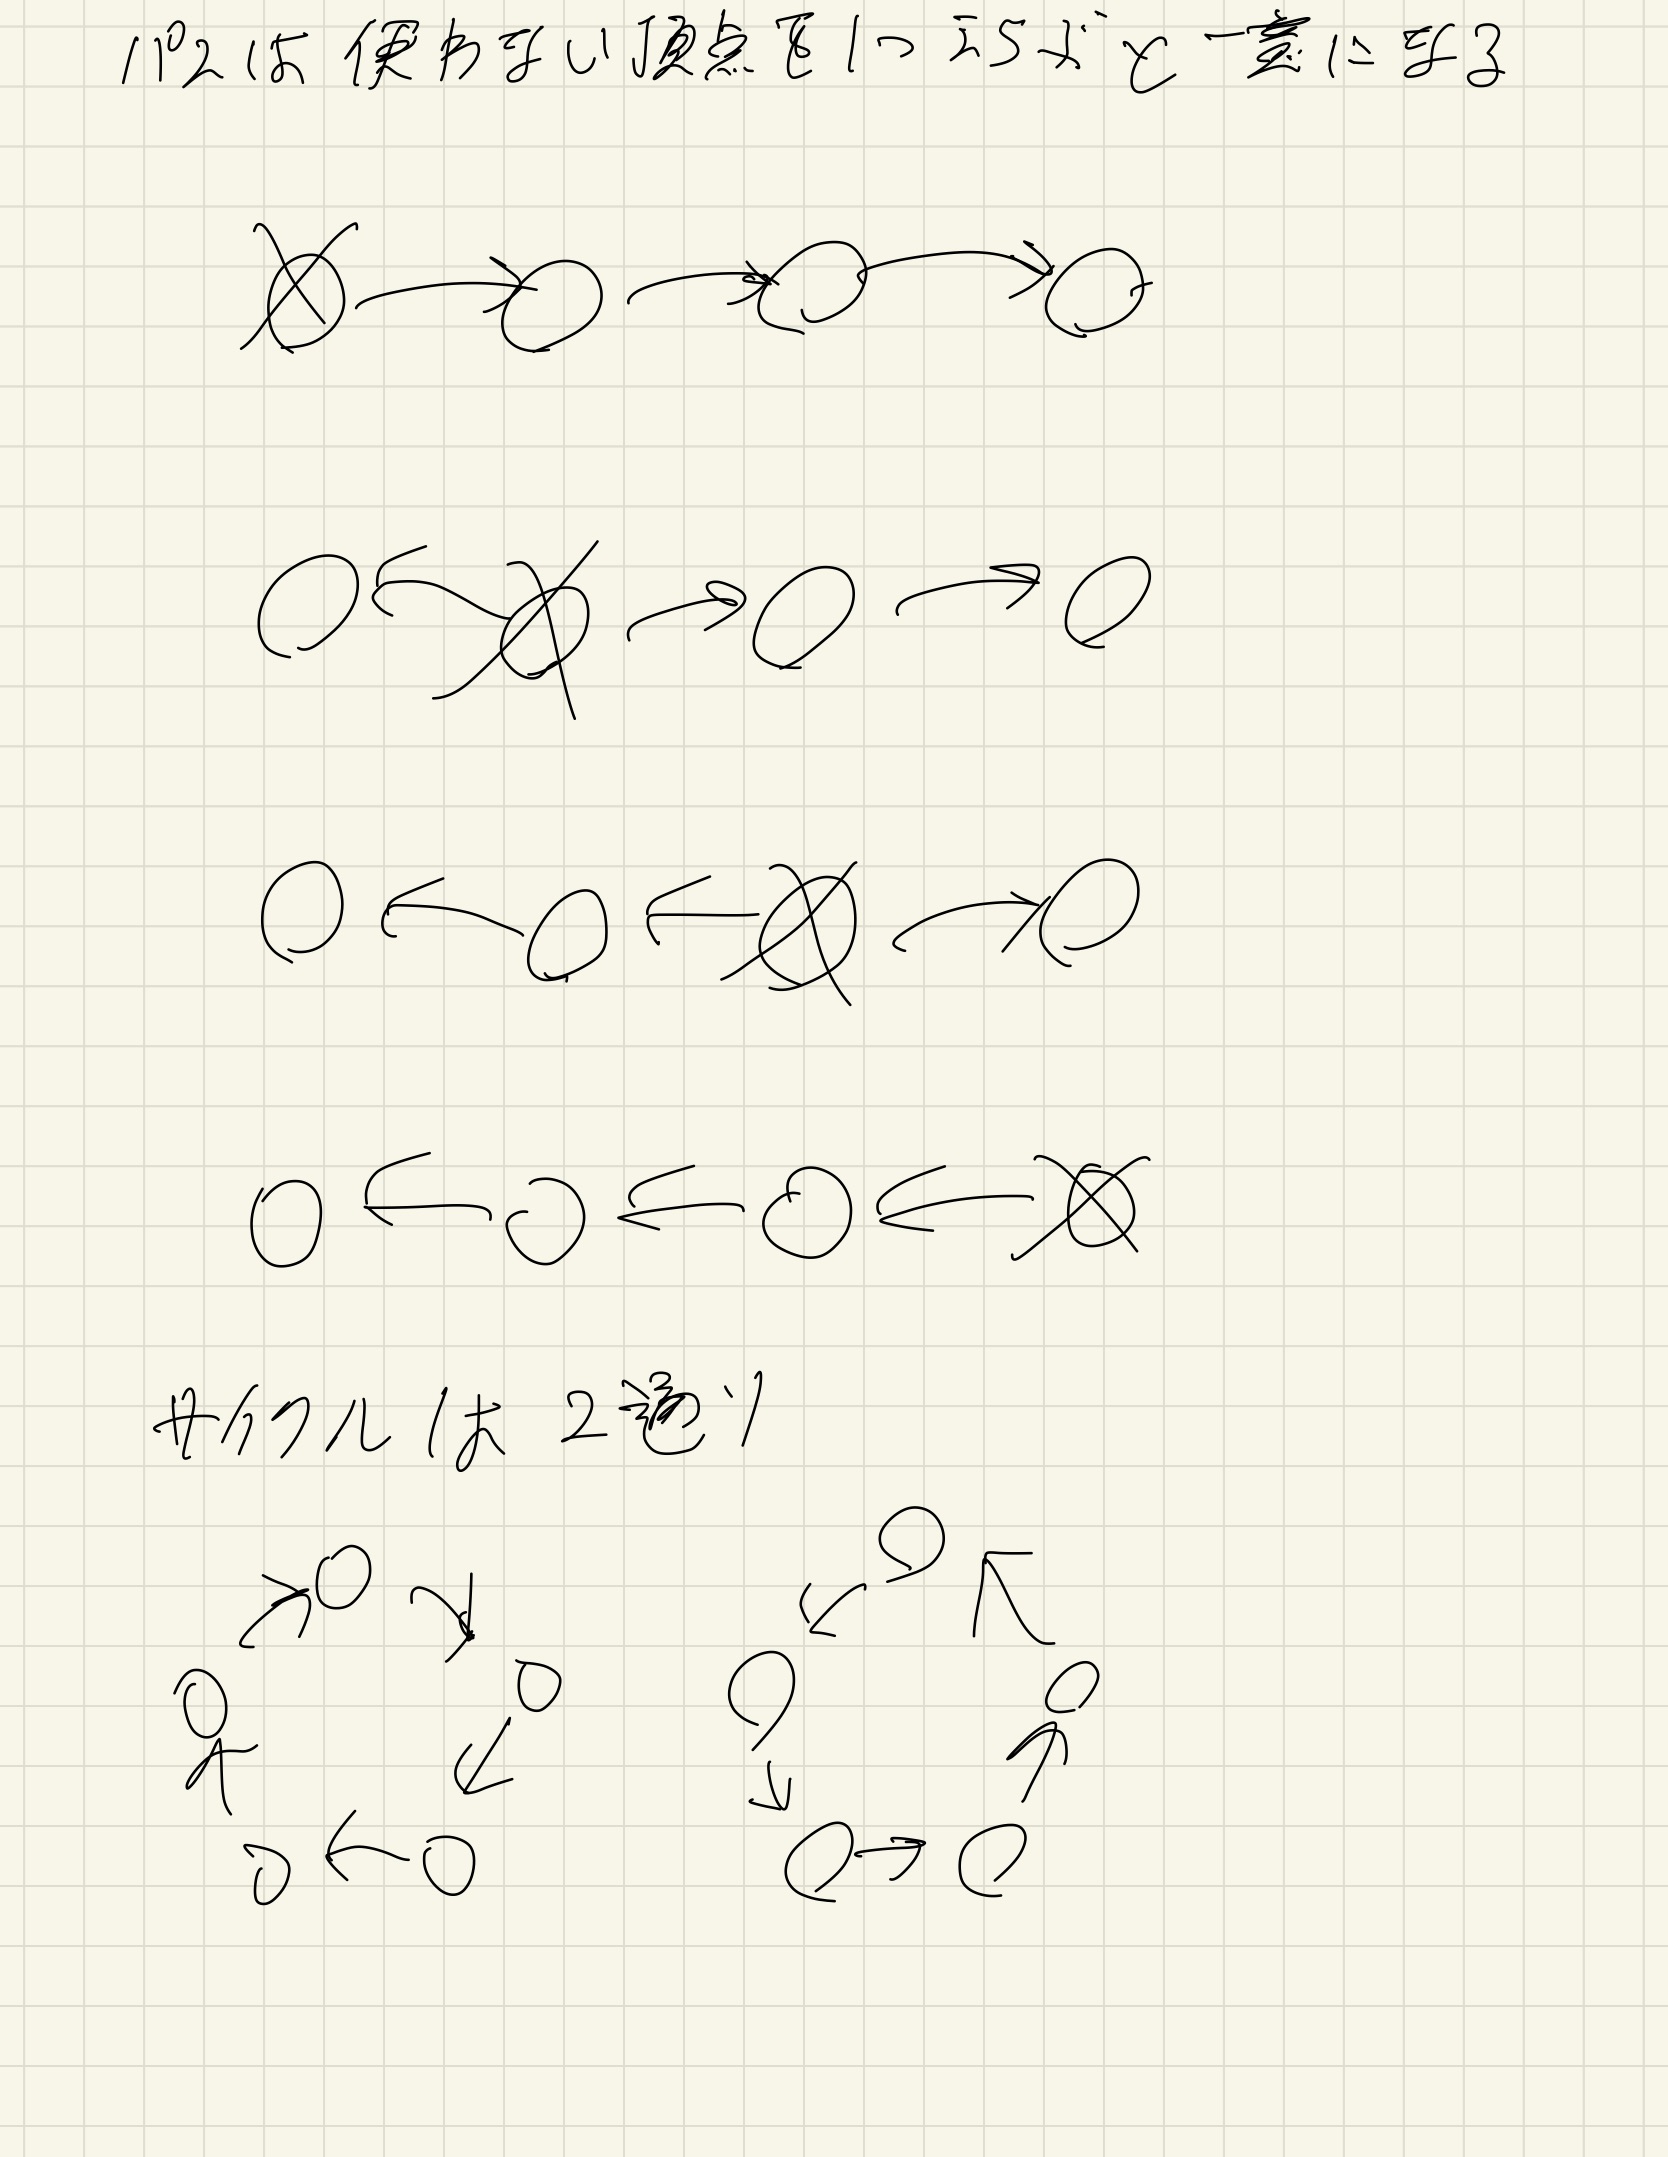 パスは使わない頂点を1つえらぶと一意になる
サイクルは2通り